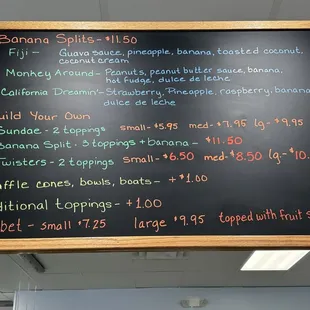 Banana Splits - $11.50
Fiji - Guava sauce, pineapple, banana, toasted coconut,
coconut cream
Monkey Around - Peanuts, peanut butter sauce, banana,
hot fudge, dulce de leche
California Dreamin' - Strawberry, Pineapple, raspberry, banana
dulce de leche
uild Your Own
Sundae - 2 toppings small - $5.95 med - $7.95 lg - $9.95
Banana Split - 3 toppings + banana - $11.50
Twisters - 2 toppings small - $6.50 med - $8.50 lg - $10.
affle cones, bowls, boats - + $1.00
ditional toppings - +1.00
bet - small $7.25 large $9.95 topped with fruit s